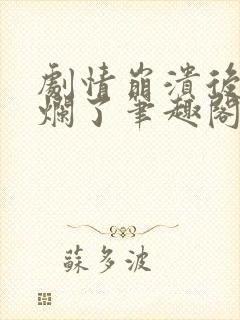 劇情崩潰後
爛了筆趣閣
蘇多波